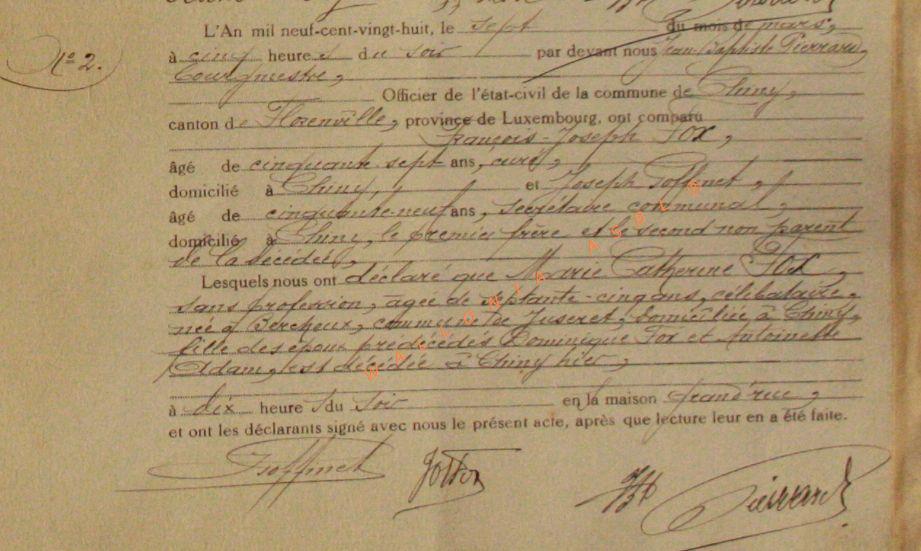 L'An mil neuf-cent-vingt-huit, le sept du mois de mars,
N° 2.
à cinq heures du soir par devant nous Jean-Baptiste Pierrard,
bourgmestre,
Officier de l'état-civil de la commune de Chiny,
canton de Florenville, province de Luxembourg, ont comparu
François-Joseph FOX,
âgé de cinquante-sept ans, curé,
domicilié à Chiny, et Joseph Goffinet,
âgé de cinquante-neuf ans, secrétaire communal,
domicilié à Chiny, le premier frère et le second non parent
de la décédée,
Lesquels nous ont déclaré que Marie Catherine FOX,
sans profession, âgée de septante-cinq ans, célibataire,
née à Bercheux, commune de Juseret, domiciliée à Chiny,
fille des époux prédécédés Dominique Fox et Antoinette
Adam, est décédée à Chiny hier,
à dix heures du soir en la maison Grand'rue,
et ont les déclarants signé avec nous le présent acte, après que lecture leur en a été faite.
Goffinet Pierrard